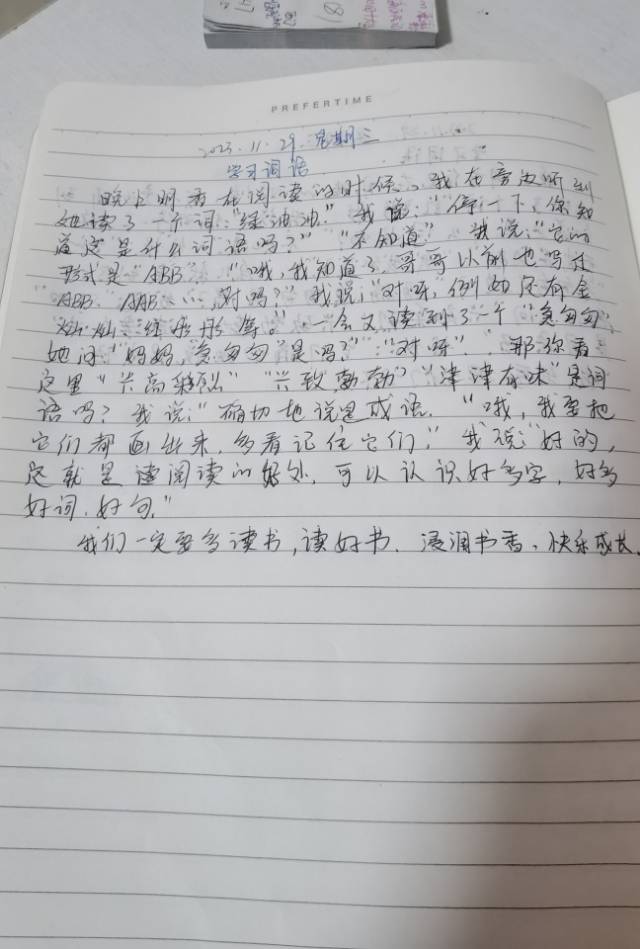 PREFERTIME
2023.11.29 星期三
学习词语
晚上明看在阅读的时候,我在旁边听到
她读了一个词:“绿油油”我说:“停一下,你知
道这是什么词语吗?”“不知道”我说:“它的
形式是“ABB”.“哦,我知道了,哥哥以前也写过
ABB、AAB……对吗?”我说:“对呀,例如还有金
灿灿、红彤彤等。”一会又读到了一个“急匆匆”
她问“妈妈,急匆匆”是吗?”:“对呀”.那你看
这里“兴高彩烈”“兴致勃勃”“津津有味”是词
语吗?我说:“确切地说是成语.“哦,我要把
它们都画出来,多看记住它们.”我说:“好的,
这就是读阅读的好处,可以认识好多字,好多
好词.好句.”
我们一定要多读书,读好书.浸润书香、快乐成长.